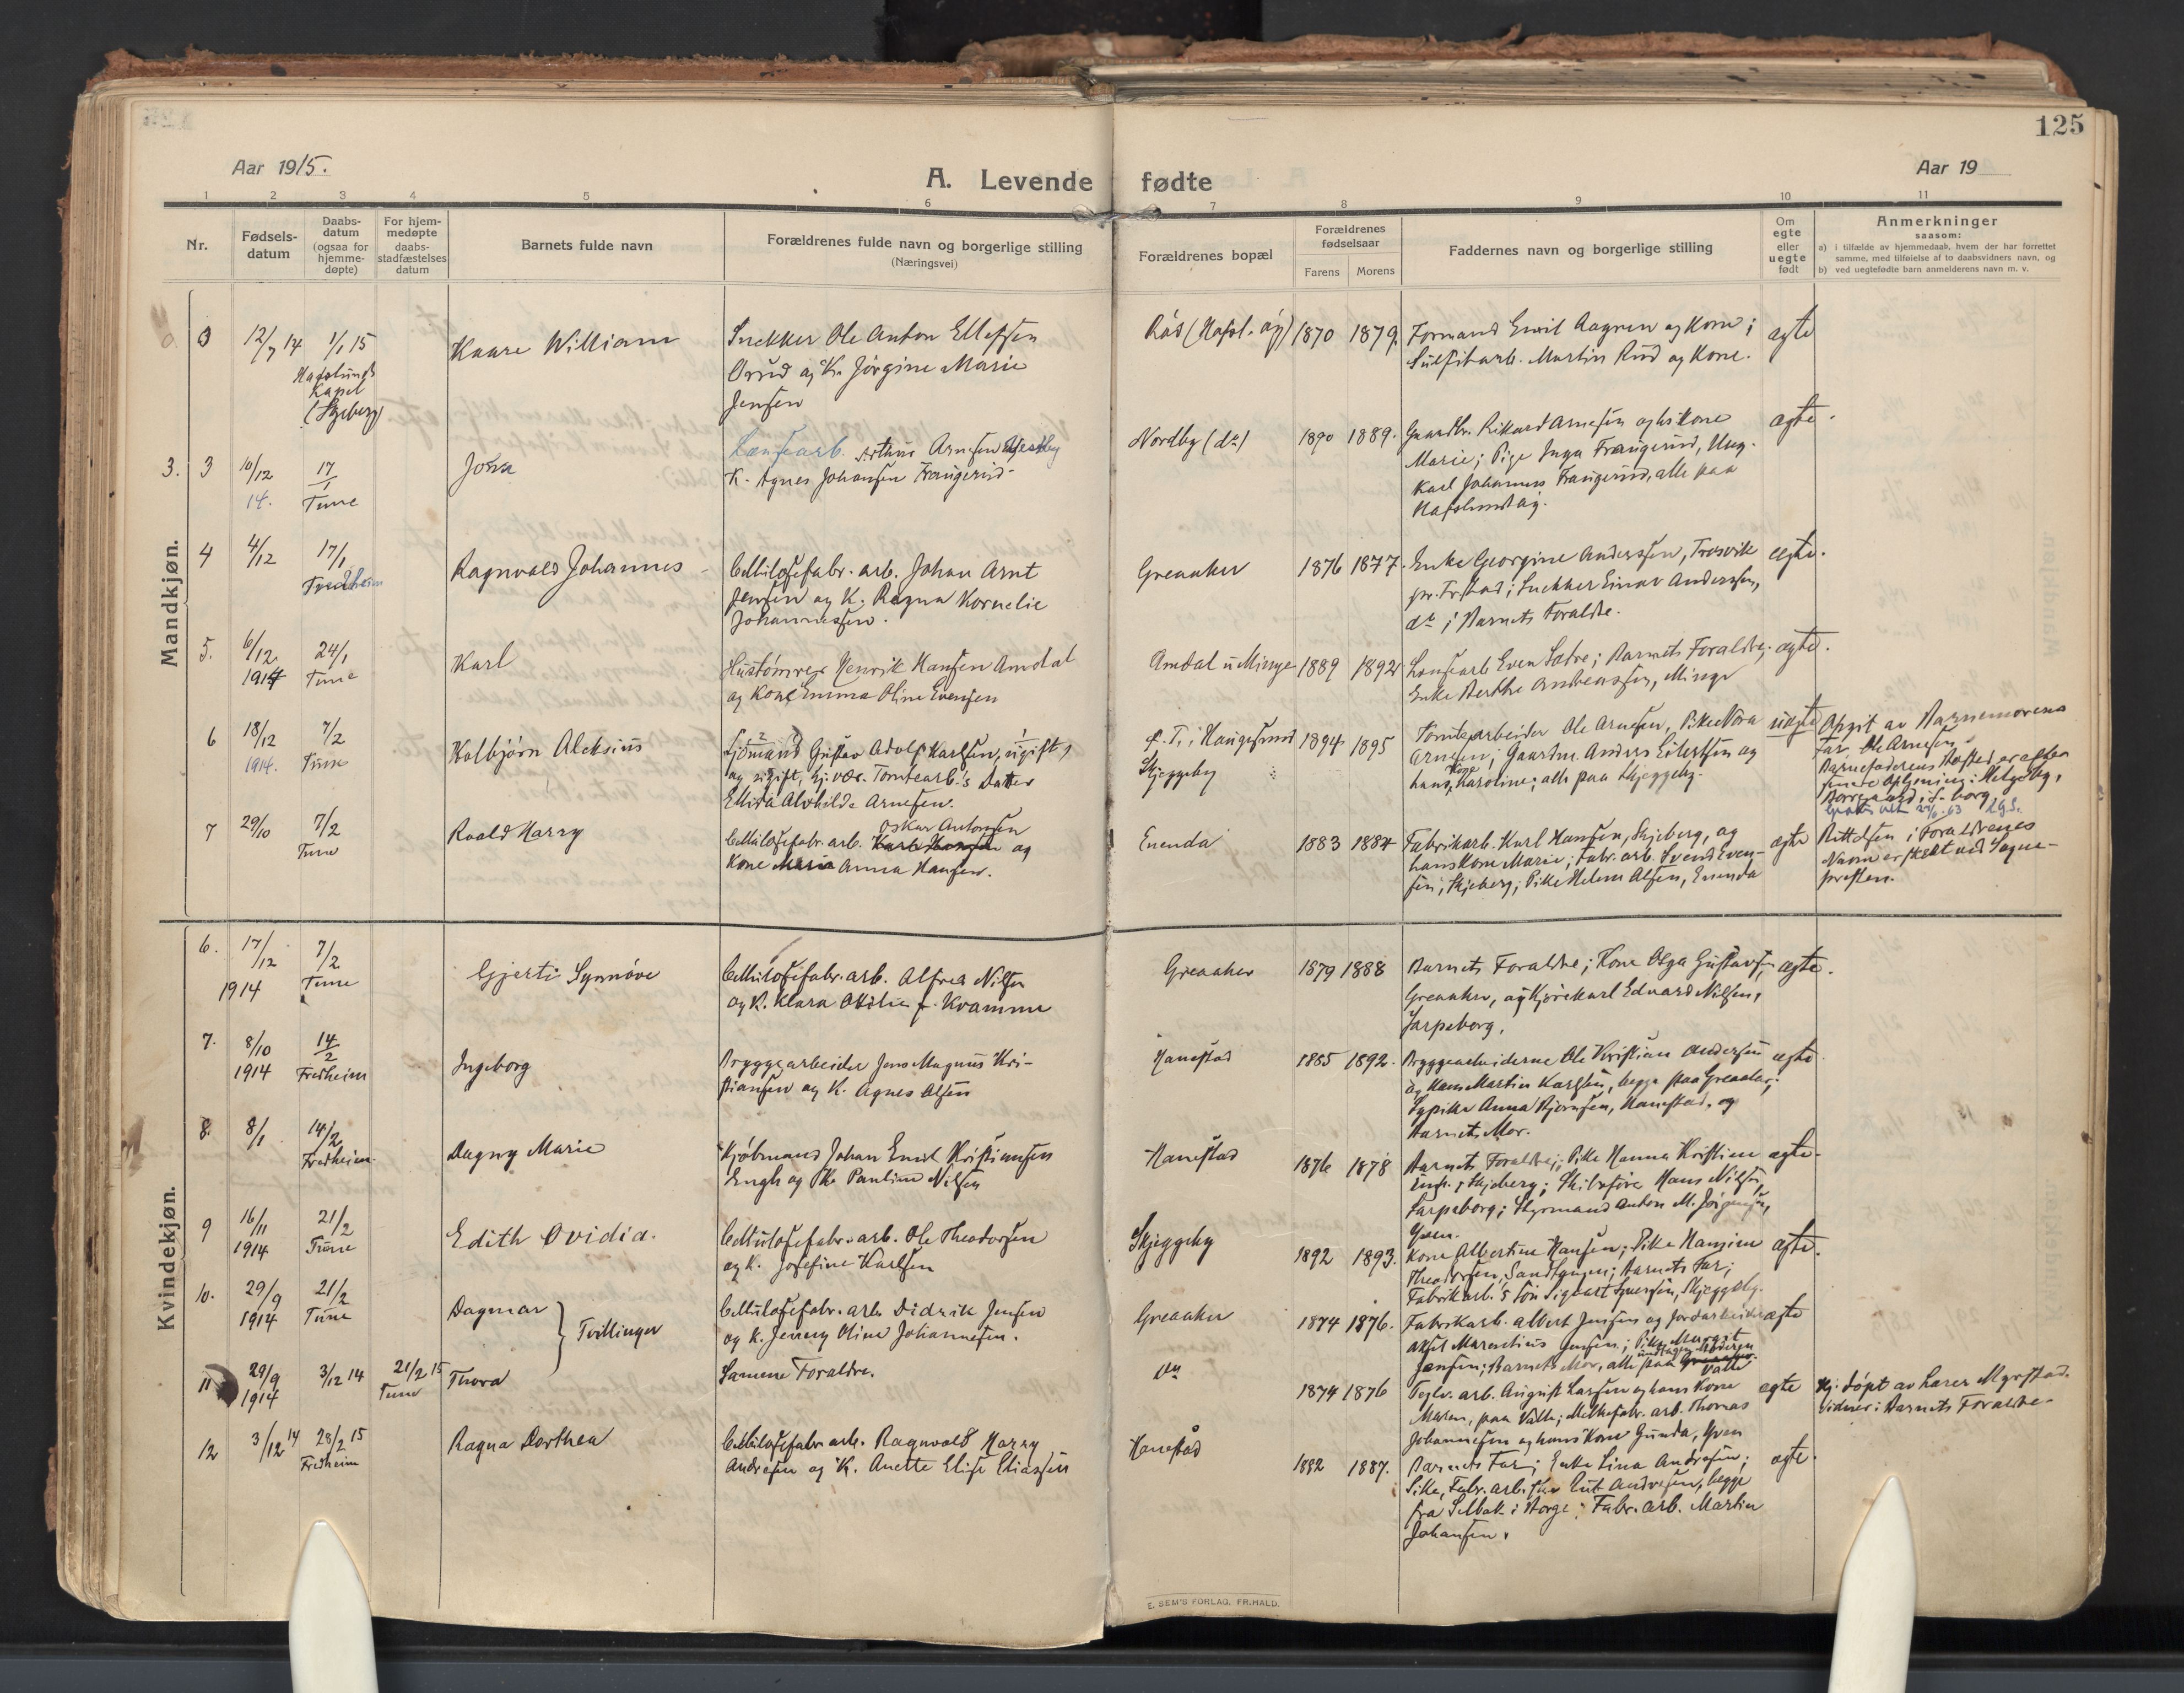 125
Aar 1915.
A. Levende fødte
Aar 19
1 2 3 4 5 6 7 8 9 10 11
Nr.
Fødsels-
datum
Daabs-
datum
(ogsaa for
hjemme-
døpte)
For hjem-
medøpte
daabs-
stadfæstelses
datum
Barnets fulde navn
Forældrenes fulde navn og borgerlige stilling
(Næringsvei)
Forældrenes bopæl
Forældrenes
fødselsaar
Farens Morens
Faddernes navn og borgerlige stilling
Om
egte
eller
uegte
født
Anmerkninger
saasom:
a) i tilfælde av hjemmedaab, hvem der har forrettet
samme, med tilføielse af to daabsvidners navn, og
b) ved uegtefødte barn anmelderens navn m. v.
Mandkjøn.
0 12/7 14 1/1 15
Hafslunds
Kapel
(Skjeberg)
Kaare William
Snekker Ole Anton Ellefsen
og K. Jørgine Marie
Jensen
1870 1879.
Formand Emil Aagren og Kone;
Sulfitarb. Martin Rud og Kone.
ægte
3. 3 10/12 14. 17/1 Tune
Arthur Arnesen
K. Agnes Johansen Frangerud
Nordby (do) 1890 1889.
Gaardbr. Rikard Arnesen og hs kone
Marie; Pige Inga Frangerud, Ung.
Karl Johannes Frangerud, alle paa
ægte.
4 4/12 17/1 Fredheim
Ragnvald Johannes
Cellulosefabr. arb. Johan Arnt
Jensen og K. Ragna Kornelie
Johannessen.
Greaaker 1876 1877.
Enke Georgine Anderssen, Trosvik
pr. Fr.stad; Snekker Einar Anderssen,
do; Barnets Foraldre.
ægte.
5. 6/12 1914 24/1 Tune
Karl
Hustømrer Henrik Hansen Amdal
og Kone Emma Oline Evensen
Amdal u Minge 1889 1892
Lensearb. Even Sætre; Barnets Foraldre;
Enke Berthe Andreassen, Minge
ægte.
6 18/12 1914. 7/2 Tune
Kolbjørn Aleksius
Sjømand Gustav Adolf Karlsen, ugift,
og ugift, hj. vær. Tomtearb.'s Datter
Ellida Alvhilde Arnesen.
Skjeggeby 1894 1895
Tomtearbeider Ole Arnesen, Pike Nora
Arnesen; Gaardm. Anders Eilertsen og
hans Kone Karoline; alle paa Skjeggeby.
uægte
Opgit av Barnemorens
Far, Ole Arnesen.
7 29/10 7/2 Tune
Roald Harry
Oskar Antonsen
Cellulosefabr. arb. og
Kone Anna Hansen.
Enenda 1883 1884
Fabrikarb. Karl Hansen, Skjeberg, og
hans Kone Marie; Fabr. arb. Svend Even-
sen, Skjeberg; Pike Helene Olsen, Enenda
ægte
Rettelsen i Foraldrenes
Navn er skedt ved Sogne-
presten.
Kvindekjøn.
6. 17/12 1914 7/2 Tune
Gjerti Synnøve
Cellulosefabr. arb. Alfred Nilsen
og K. Klara Otilie f. Kvamme
Greaaker 1879 1888
Barnets Foraldre; Kone Olga Gustavsen,
Greaaker, og Kjørekarl Edvard Nilsen,
Sarpsborg.
ægte.
7. 8/10 1914 14/2 Fredheim
Ingeborg
Bryggearbeider Jens Magnus Kri-
stiansen og K. Agnes Olsen
Hanestad 1885 1892.
Bryggearbeiderne Ole Kristian Andersen
og Hans Martin Karlsen, begge paa Greaaker;
Sypike Anna Bjørnsen, Hanestad, og
Barnets Mor.
ægte
8. 8/1 14/2 Fredheim.
Dagny Marie
Kjøbmand Johan Emil Kristiansen
Engh og K. Pauline Nilsen
Hanestad 1876 1878
Barnets Foraldre; Pike Hanna Kristine
Engh, Skjeberg; Skibsfører Hans Nilsen,
Sarpsborg; Styrmand Anton M. Jørgensen,
Yven.
ægte.
9 16/11 1914 21/2 Tune
Edith Ovidia.
Cellulosefabr. arb. Ole Theodorsen
og K. Josefine Karlsen
Skjeggeby 1892 1893.
Kone Albertine Hansen; Pike Hansine
Theodorsen, Sandtangen; Barnets Far;
Fabrikarb.'s Søn Sigvart Syversen, Skjeggeby.
ægte.
10. 29/9 1914 21/2 Tune
Dagmar } Tvillinger
Cellulosefabr. arb. Didrik Jensen
og K. Jenny Oline Johannesen.
Greaaker 1874 1876.
Fabrikarb. Albert Jensen og Jordarbeider
Aksel Marentius Jensen; Pike Margit
Jensen; Barnets Mor, alle paa Valle
ægte
11 29/9 1914 3/12 14 21/2 15 Tune
Thora
Samme Foraldre.
do 1874 1876
Teglv. arb. August Larsen og hans Kone
Maren, paa Valle; Melkefabr. arb. Thomas
Johannesen og hans Kone Gunda, Yven
ægte
Hj. døpt av Lærer Myrstad.
Vidner: Barnets Foraldre.
12 3/12 14 28/2 15 Fredheim
Ragna Dorthea
Cellulosefabr. arb. Ragnvald Harry
Andresen og K. Anette Elise Eliassen
Hanestad 1882 1887.
Barnets Far; Enke Lina Andresen;
Pike, Fabr. arb. Rut Andresen, begge
fra Selbak i Borge; Fabr. arb. Martin
Johansen.
ægte.
E. SEM'S FORLAG, FR.HALD.